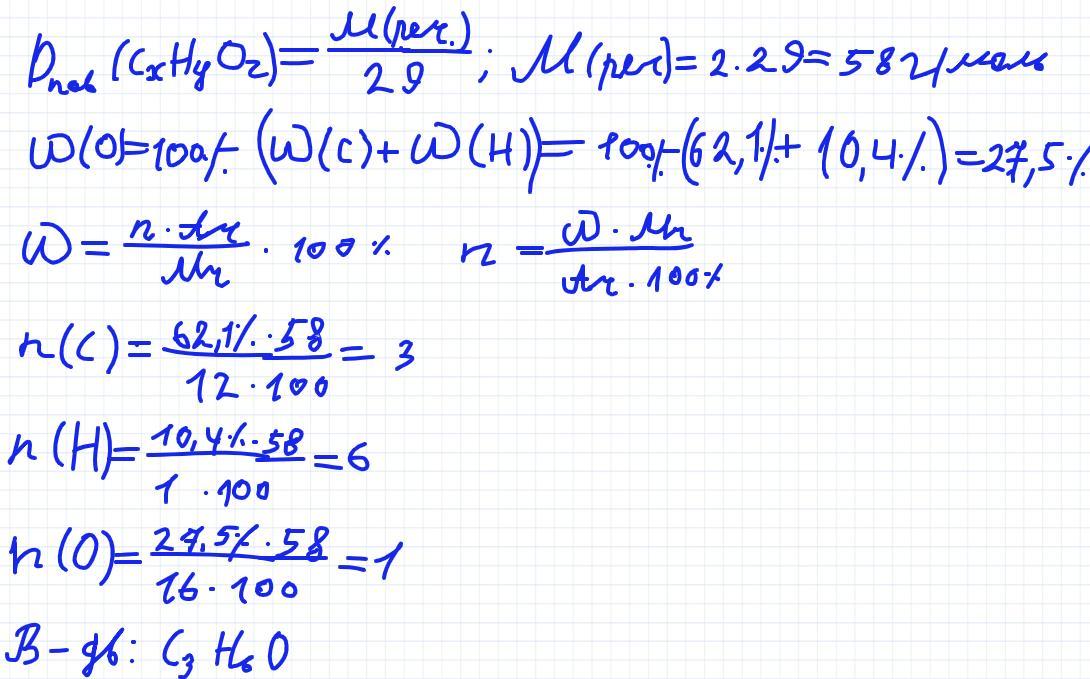 Dпов (CxHyOz) = M(реч.) / 29 ; M(реч) = 2 · 29 = 58 г/моль
W(O) = 100% - (W(C) + W(H)) = 100% - (62,1% + 10,4%) = 27,5%
W = n · Ar / Mr · 100% n = W · Mr / Ar · 100%
n(C) = 62,1% · 58 / 12 · 100 = 3
n(H) = 10,4% · 58 / 1 · 100 = 6
n(O) = 27,5% · 58 / 16 · 100 = 1
В-дь: C3H6O